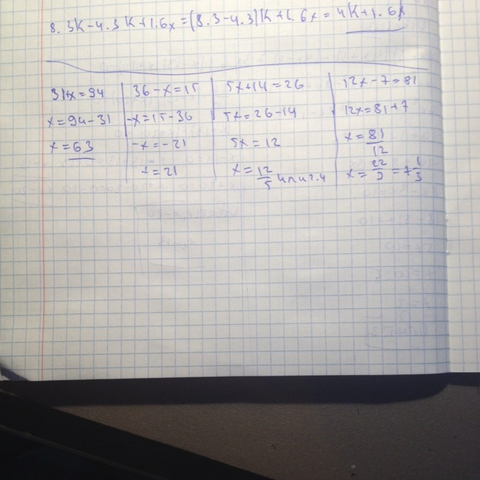 8.3K-4.3K+1.6x=(8.3-4.3)K+1.6x=4K+1.6x
31+x=94
x=94-31
x=63
36-x=15
-x=15-36
-x=-21
x=21
5x+14=26
5x=26-14
5x=12
x=12/5 или 2.4
12x-7=81
12x=81+7
x=81/12
x=22/3=7 1/3